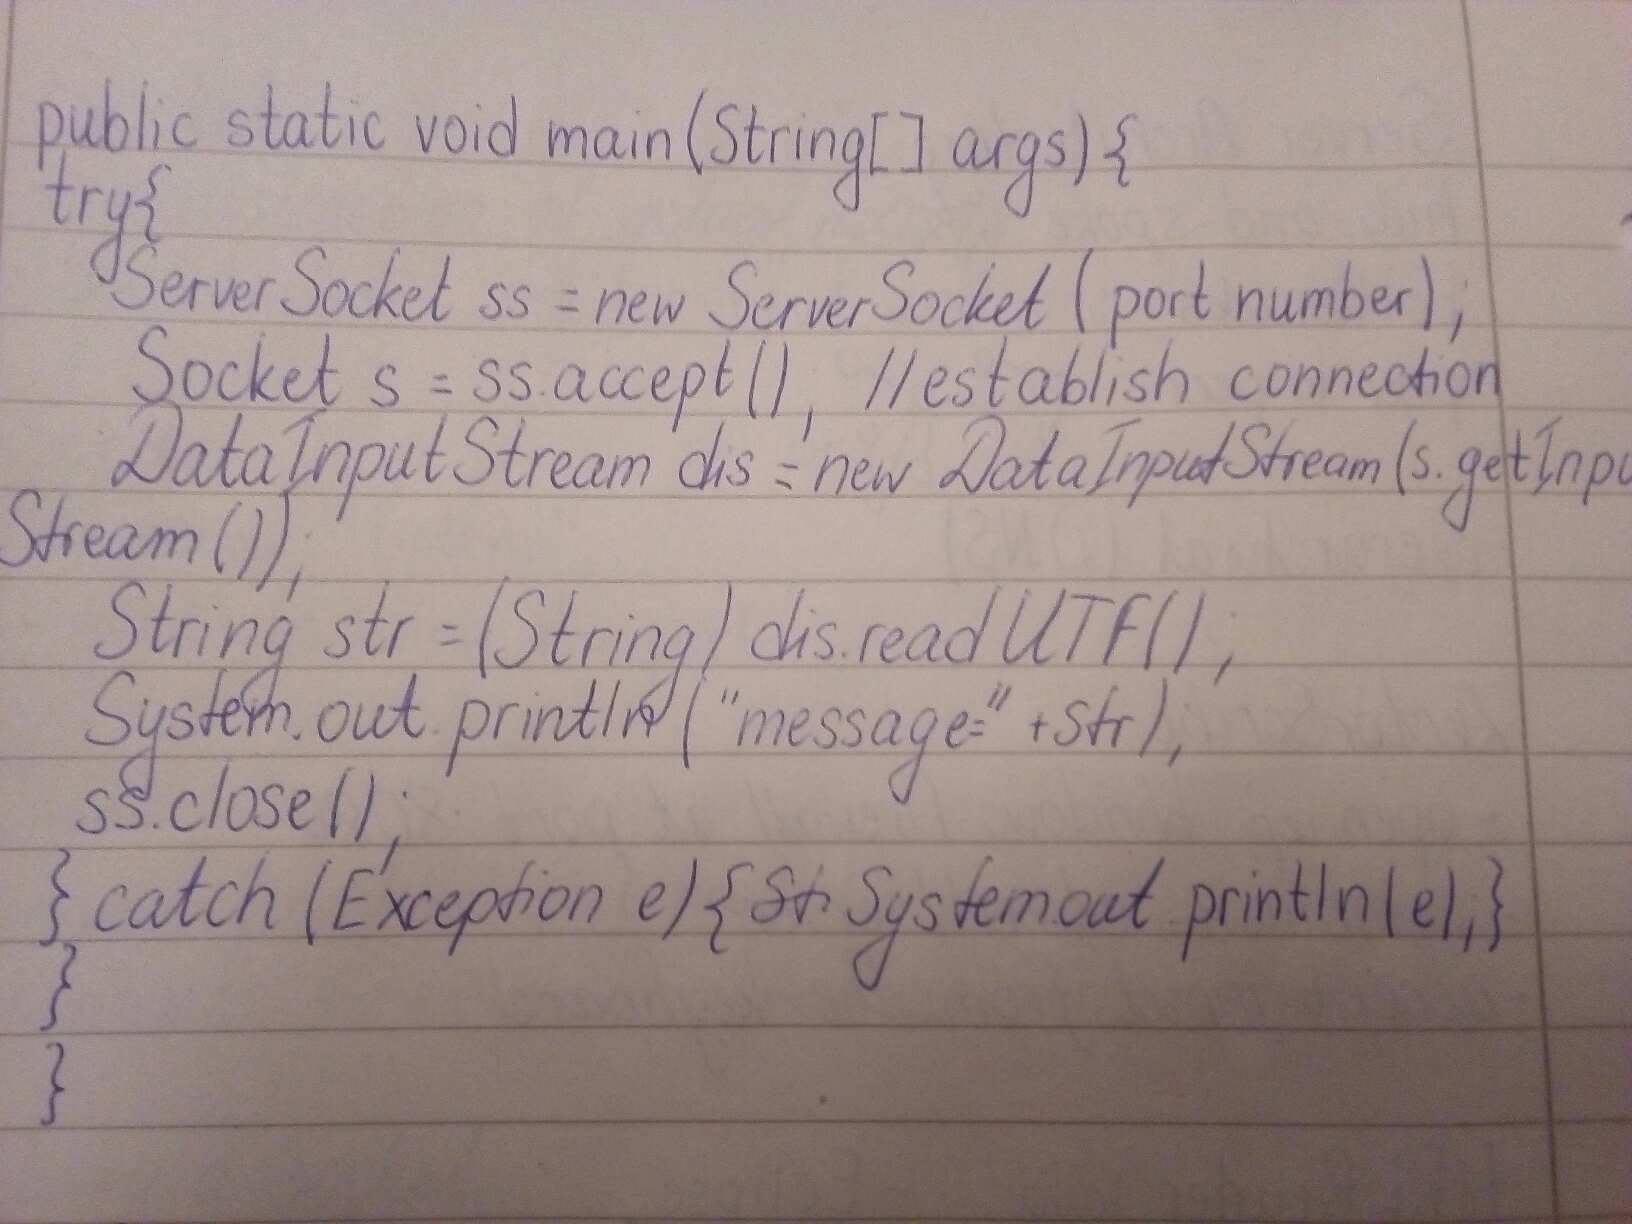 public static void main(String[] args){
try{
ServerSocket ss = new ServerSocket (port number);
Socket s = ss.accept(); //establish connection
DataInputStream dis = new DataInputStream(s.getInpu
Stream());
String str = (String) dis.readUTF();
System.out.println("message=" +str);
ss.close();
} catch (Exception e){ System.out.println(e);}
}
}